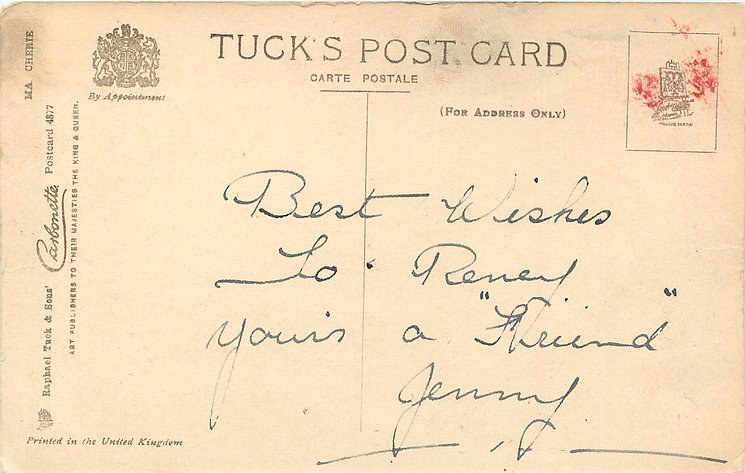 TUCK'S POST CARD
CARTE POSTALE
By Appointment
(FOR ADDRESS ONLY)
TRADE MARK
MA CHERIE
Raphael Tuck & Sons' Carbonette Postcard 4877
ART PUBLISHERS TO THEIR MAJESTIES THE KING & QUEEN.
Best Wishes
To Reney
yours a "Friend"
Jenny
Printed in the United Kingdom